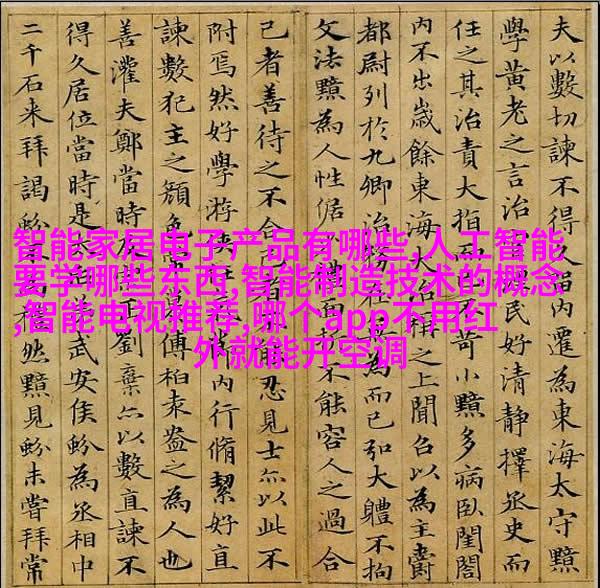 智能家居电子产品有哪些,人工智能
要学哪些东西,智能制造技术的概念
,智能电视推荐,哪个app不用红
外就能开空调
夫以數切諫不得久留內遷為東海太守黯
學黃老之言治民好清靜擇丞史而
任之其治責大指而不苛小黯多病臥閨閤
內不出歲餘東海大治稱之上聞召以為主爵
都尉列於九卿治務在為而已弘大體不拘
文法黯為人性倨不能容人之過合
己者善待之不合己者能忍見士亦以此不
附焉然好學游俠內行脩絜好直
諫數犯主之顏色傅柏袁盎之為人也
善灌夫鄭當時正劉棄亦以數直諫不
得久居位當時是太武安侯蚡為丞相中
二千石來拜謁蚡然黯見蚡未嘗拜常